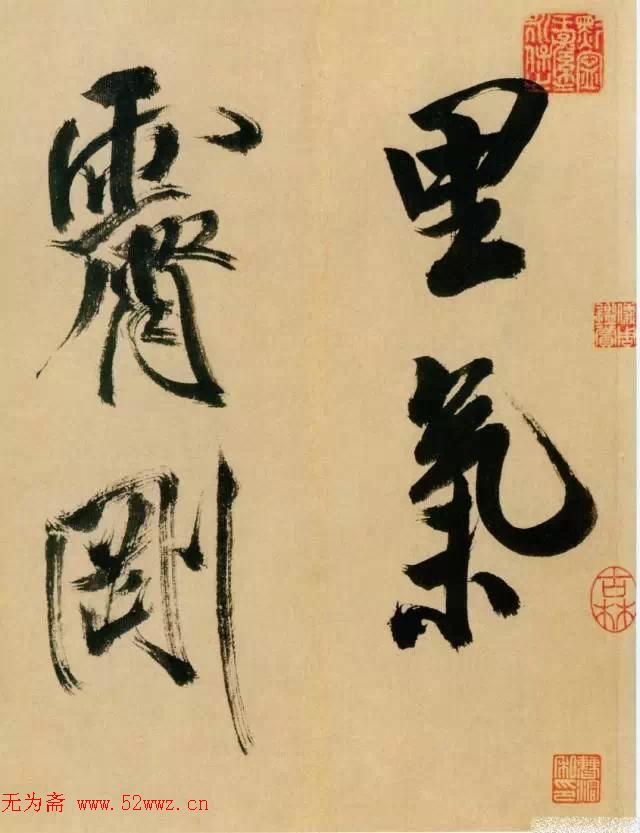 里氣
霽剛
古林
无为斋 www.52wwz.cn